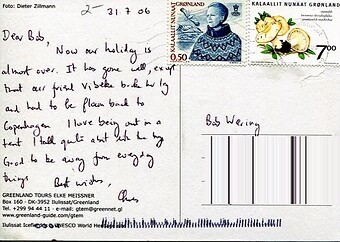 Foto: Dieter Zillmann
2-
31.7.06
KALAALLIT NUNAAT
GRØNLAND
0.50
KALAALLIT NUNAAT GRØNLAND
7.00
Dear Bob,
Now our holiday is
almost over. It has gone well, except
that our friend Vibeke broke her leg
and had to be flown back to
Copenhagen. I love being out in a
tent I
Good to be away from everyday
things
Best wishes,
Chris
Bob Waring
GREENLAND TOURS ELKE MEISSNER
Box 160 - DK-3952 Ilulissat/Greenland
Tel. +299 94 44 11 - e-mail: gtem@greennet.gl
www.greenland-guide.com/gtem
Ilulissat Icefjord UNESCO World Heritage